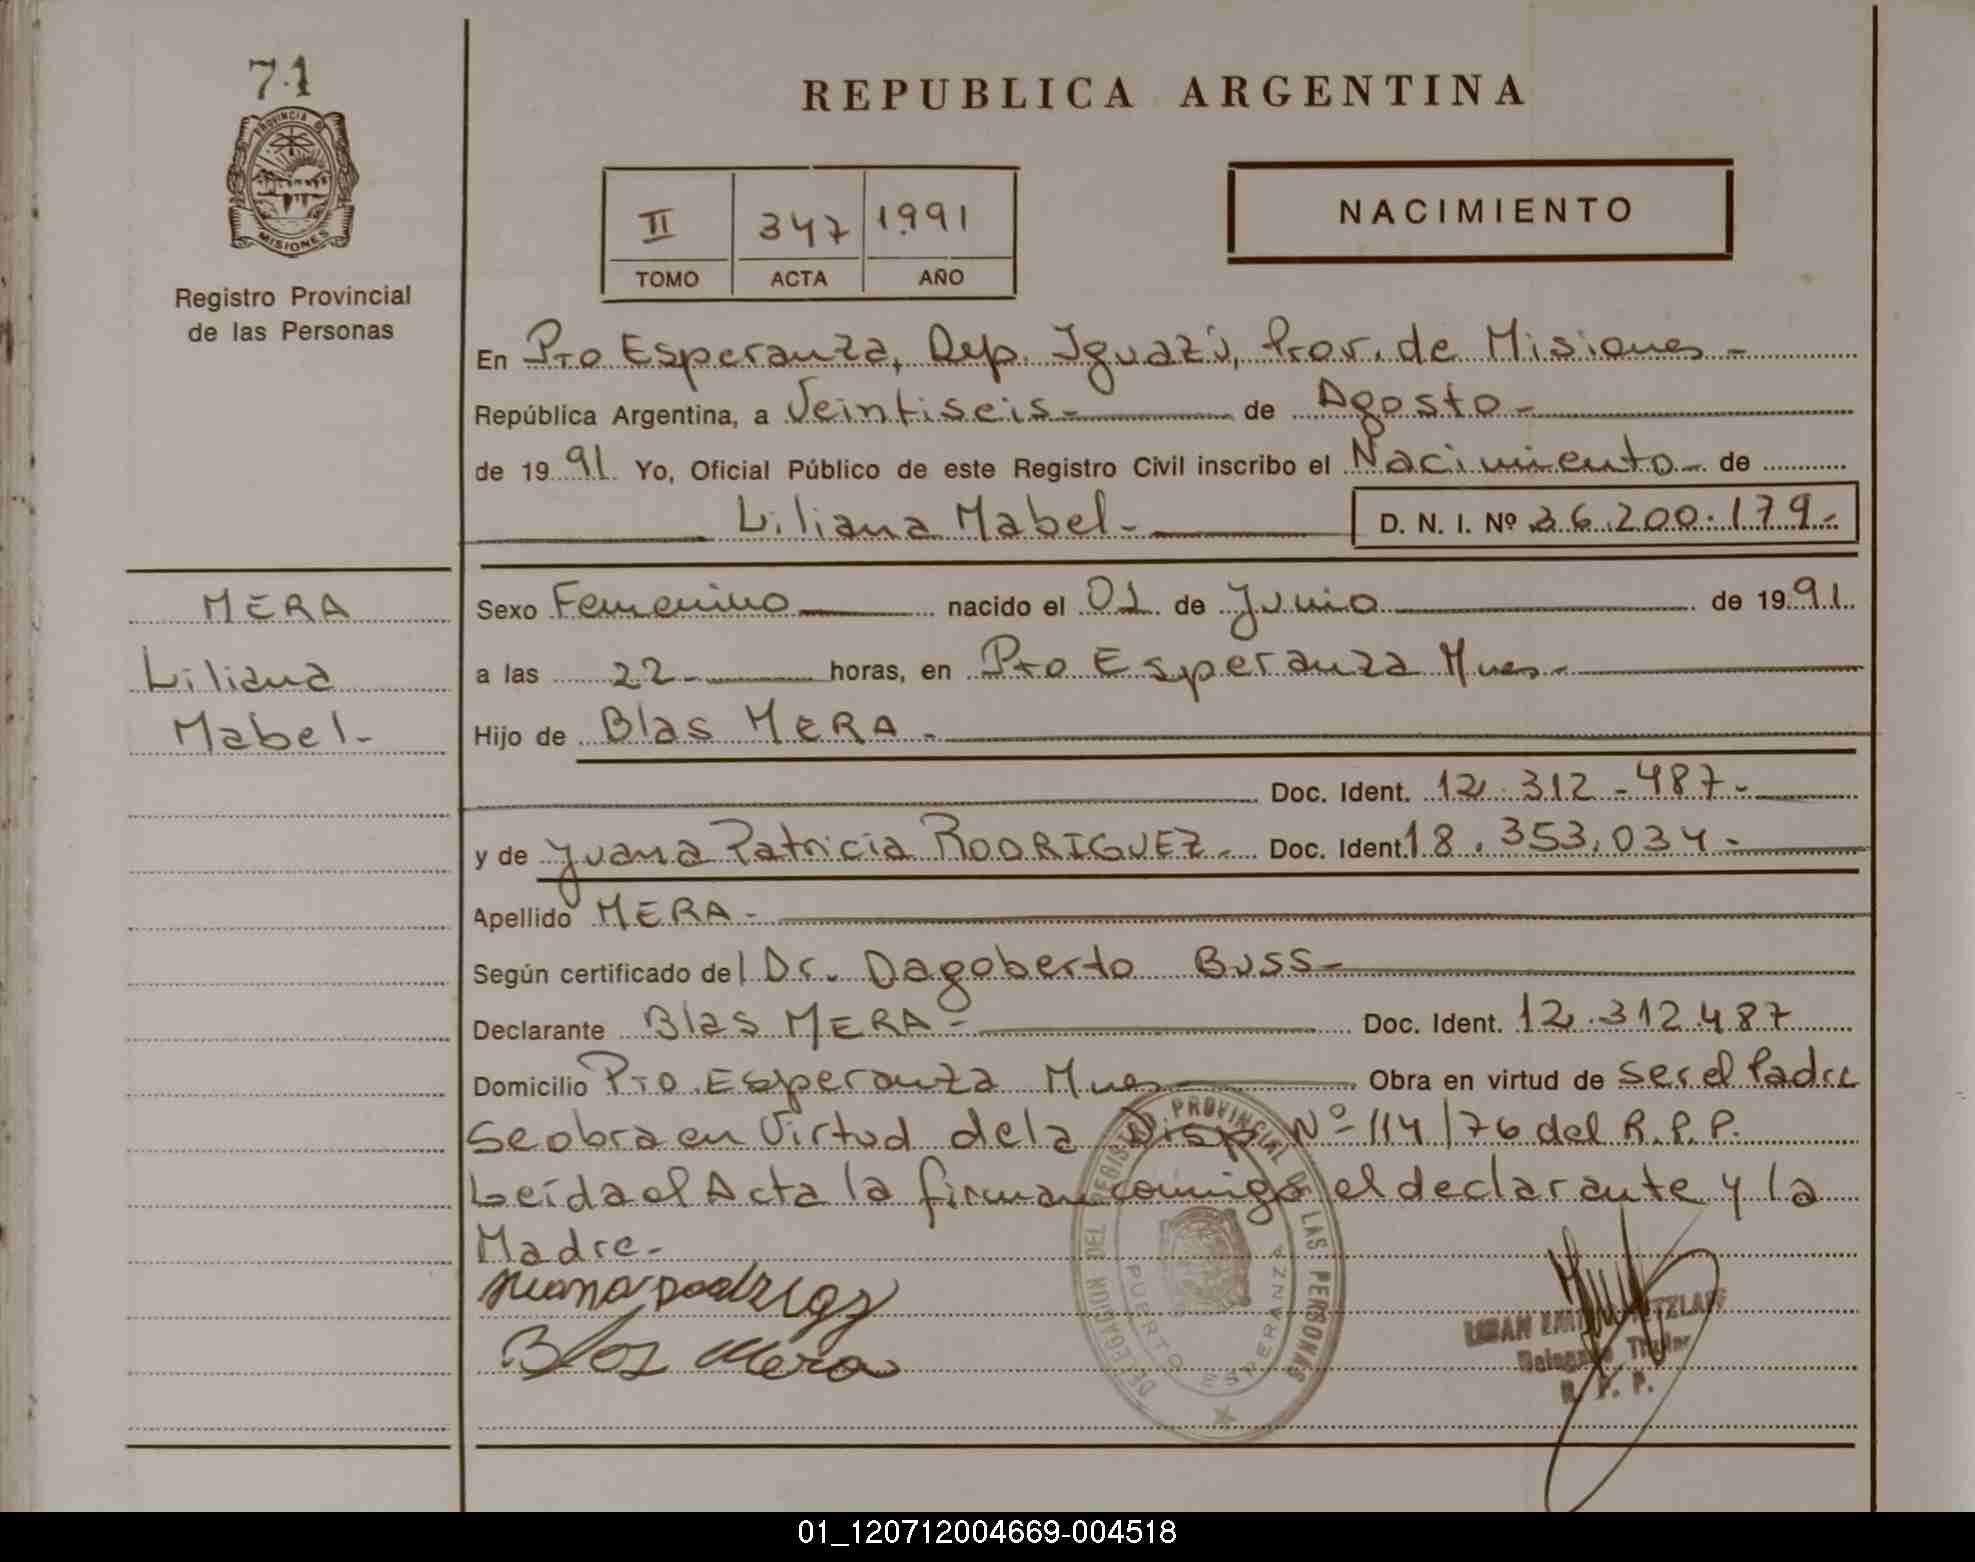 71
PROVINCIA D
MISIONES
Registro Provincial
de las Personas
REPUBLICA ARGENTINA
II 347 1991
TOMO ACTA AÑO
NACIMIENTO
En Pto Esperanza, Dep. Iguazú, Prov. de Misiones -
República Argentina, a Veintiseis - de Agosto -
de 19 91 Yo, Oficial Público de este Registro Civil inscribo el Nacimiento - de
Liliana Mabel - D. N. I. Nº 36.200.179 -
MERA
Liliana
Mabel -
Sexo Femenino nacido el 01 de Junio de 19 91
a las 22 - horas, en Pto Esperanza Mnes -
Hijo de Blas MERA -
Doc. Ident. 12.312-487 -
y de Juana Patricia RODRIGUEZ - Doc. Ident. 18.353.034 -
Apellido MERA -
Según certificado del Dr. Dagoberto Buss -
Declarante Blas MERA - Doc. Ident. 12.312.487
Domicilio Pto. Esperanza Mnes Obra en virtud de ser el Padre
Se obra en Virtud de la Disp Nº 114/76 del R.P.P.
Leída el Acta la firman conmigo el declarante y la
Madre -
Blas Mera
DELEGACION DEL REGISTRO PROVINCIAL DE LAS PERSONAS
PUERTO ESPERANZA
Delegado Titular
R. P. P.
01_120712004669-004518